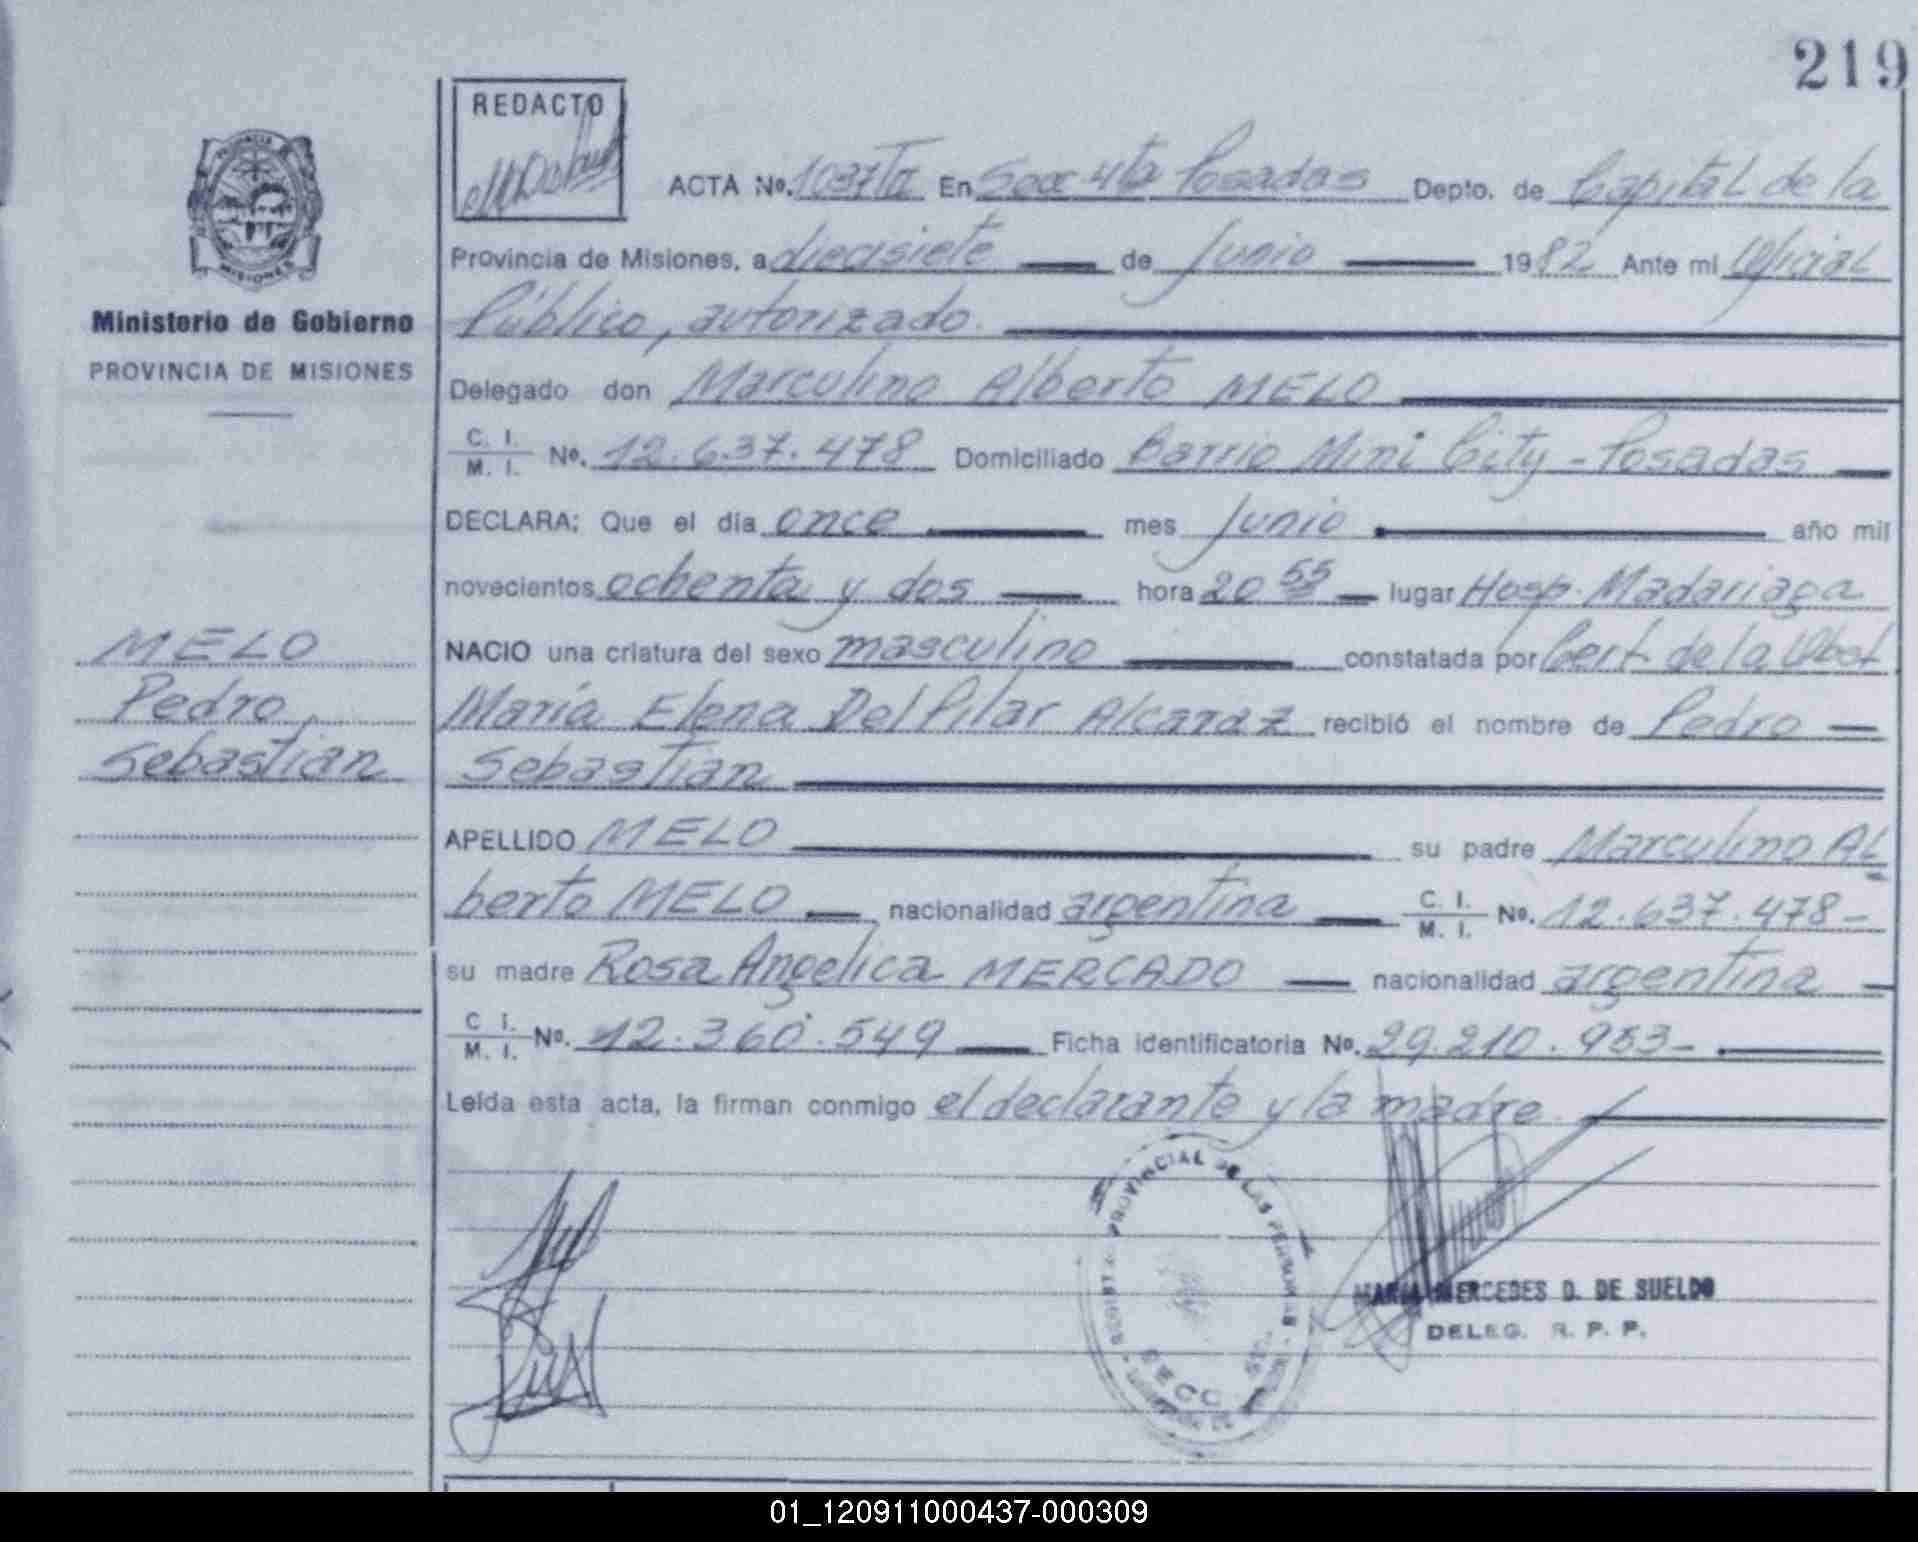 219
REDACTO
PROVINCIA
MISIONES
Ministerio de Gobierno
PROVINCIA DE MISIONES
ACTA No. En Secc 4ta Posadas Depto. de Capital de la
Provincia de Misiones, a diecisiete de Junio 1982 Ante mi Oficial
Público, autorizado.
Delegado don Marculino Alberto MELO
C. I.
M. I. No. 12.637.478 Domiciliado Barrio Mini City - Posadas
DECLARA: Que el día once mes Junio año mil
novecientos ochenta y dos hora 20 55 lugar Hosp. Madariaga
MELO
Pedro
Sebastian
NACIO una criatura del sexo masculino constatada por Cert. de la Obst
María Elena Del Pilar Alcaraz recibió el nombre de Pedro
Sebastian
APELLIDO MELO su padre Marculino Al
berto MELO nacionalidad argentina C. I.
M. I. No. 12.637.478-
su madre Rosa Angelica MERCADO nacionalidad argentina
C. I.
M. I. No. 12.360.549 Ficha identificatoria No. 29.210.953-
Leída esta acta, la firman conmigo el declarante y la madre
PROVINCIAL DE LAS PERSONAS
MARIA MERCEDES D. DE SUELDO
DELEG. R. P. P.
01_120911000437-000309